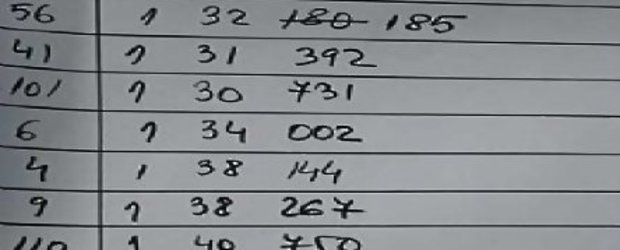 56 1 32 180 185
41 1 31 392
101 1 30 731
6 1 34 002
4 1 38 144
9 1 38 267
110 1 40 750